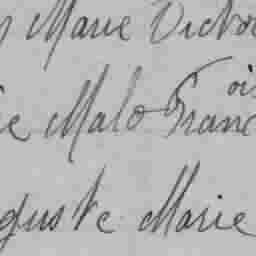 Marie Victo
e Malo Franc
ois
guste Marie